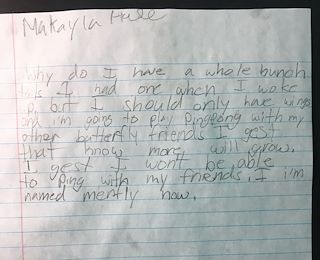 Makayla Hase
Why do I have a whole bunch
I had one when I woke
up, but I should only have wings
and i'm going to play Pingpong with my
other butterfly friends I gest
that know more will grow.
I gest I won't be able
to Ping with my friends. I i'm
named mently now.